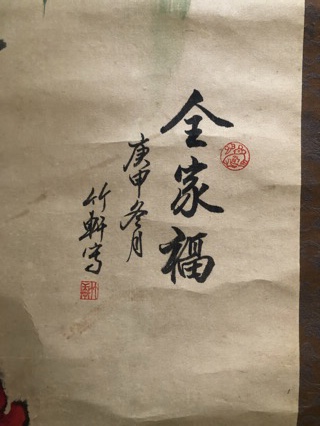 全家福
庚申冬月
竹軒寫